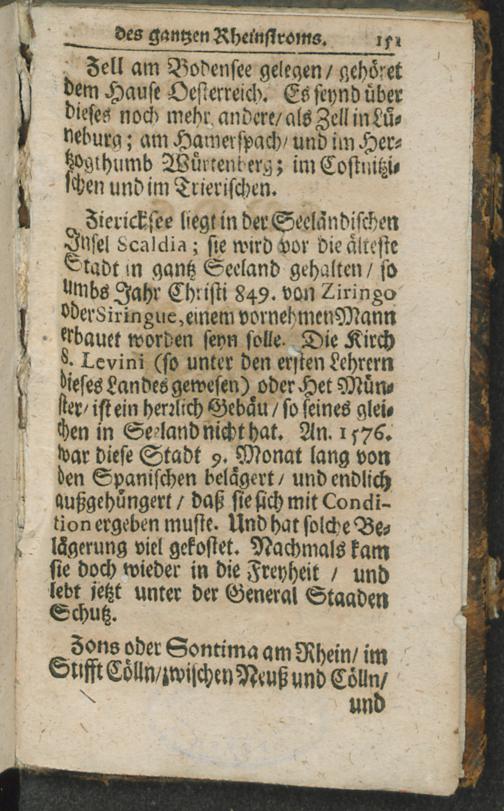 des gantzen Rheinstroms. 151
Zell am Bodensee gelegen / gehöret
dem Hause Oesterreich. Es seynd über
dieses noch mehr andere / als Zell in Lü-
neburg; am Hamerspach / und im Her-
tzogthumb Würtenberg; im Costnitzi-
schen und im Trierischen.
Ziericksee liegt in der Seeländischen
Insel Scaldia; sie wird vor die älteste
Stadt in gantz Seeland gehalten / so
umbs Jahr Christi 849. von Ziringo
oder Siringue, einem vornehmen Mann
erbauet worden seyn solle. Die Kirch
S. Levini (so unter den ersten Lehrern
dieses Landes gewesen) oder Het Mün-
ster / ist ein herrlich Gebäu / so seines glei-
chen in Seeland nicht hat. An. 1576.
war diese Stadt 9. Monat lang von
den Spanischen belägert / und endlich
außgehüngert / daß sie sich mit Condi-
tion ergeben muste. Und hat solche Be-
lägerung viel gekostet. Nachmals kam
sie doch wieder in die Freyheit / und
lebt jetzt unter der General Staaden
Schutz.
Zons oder Sontima am Rhein / im
Stifft Cölln / zwischen Neuß und Cölln /
und